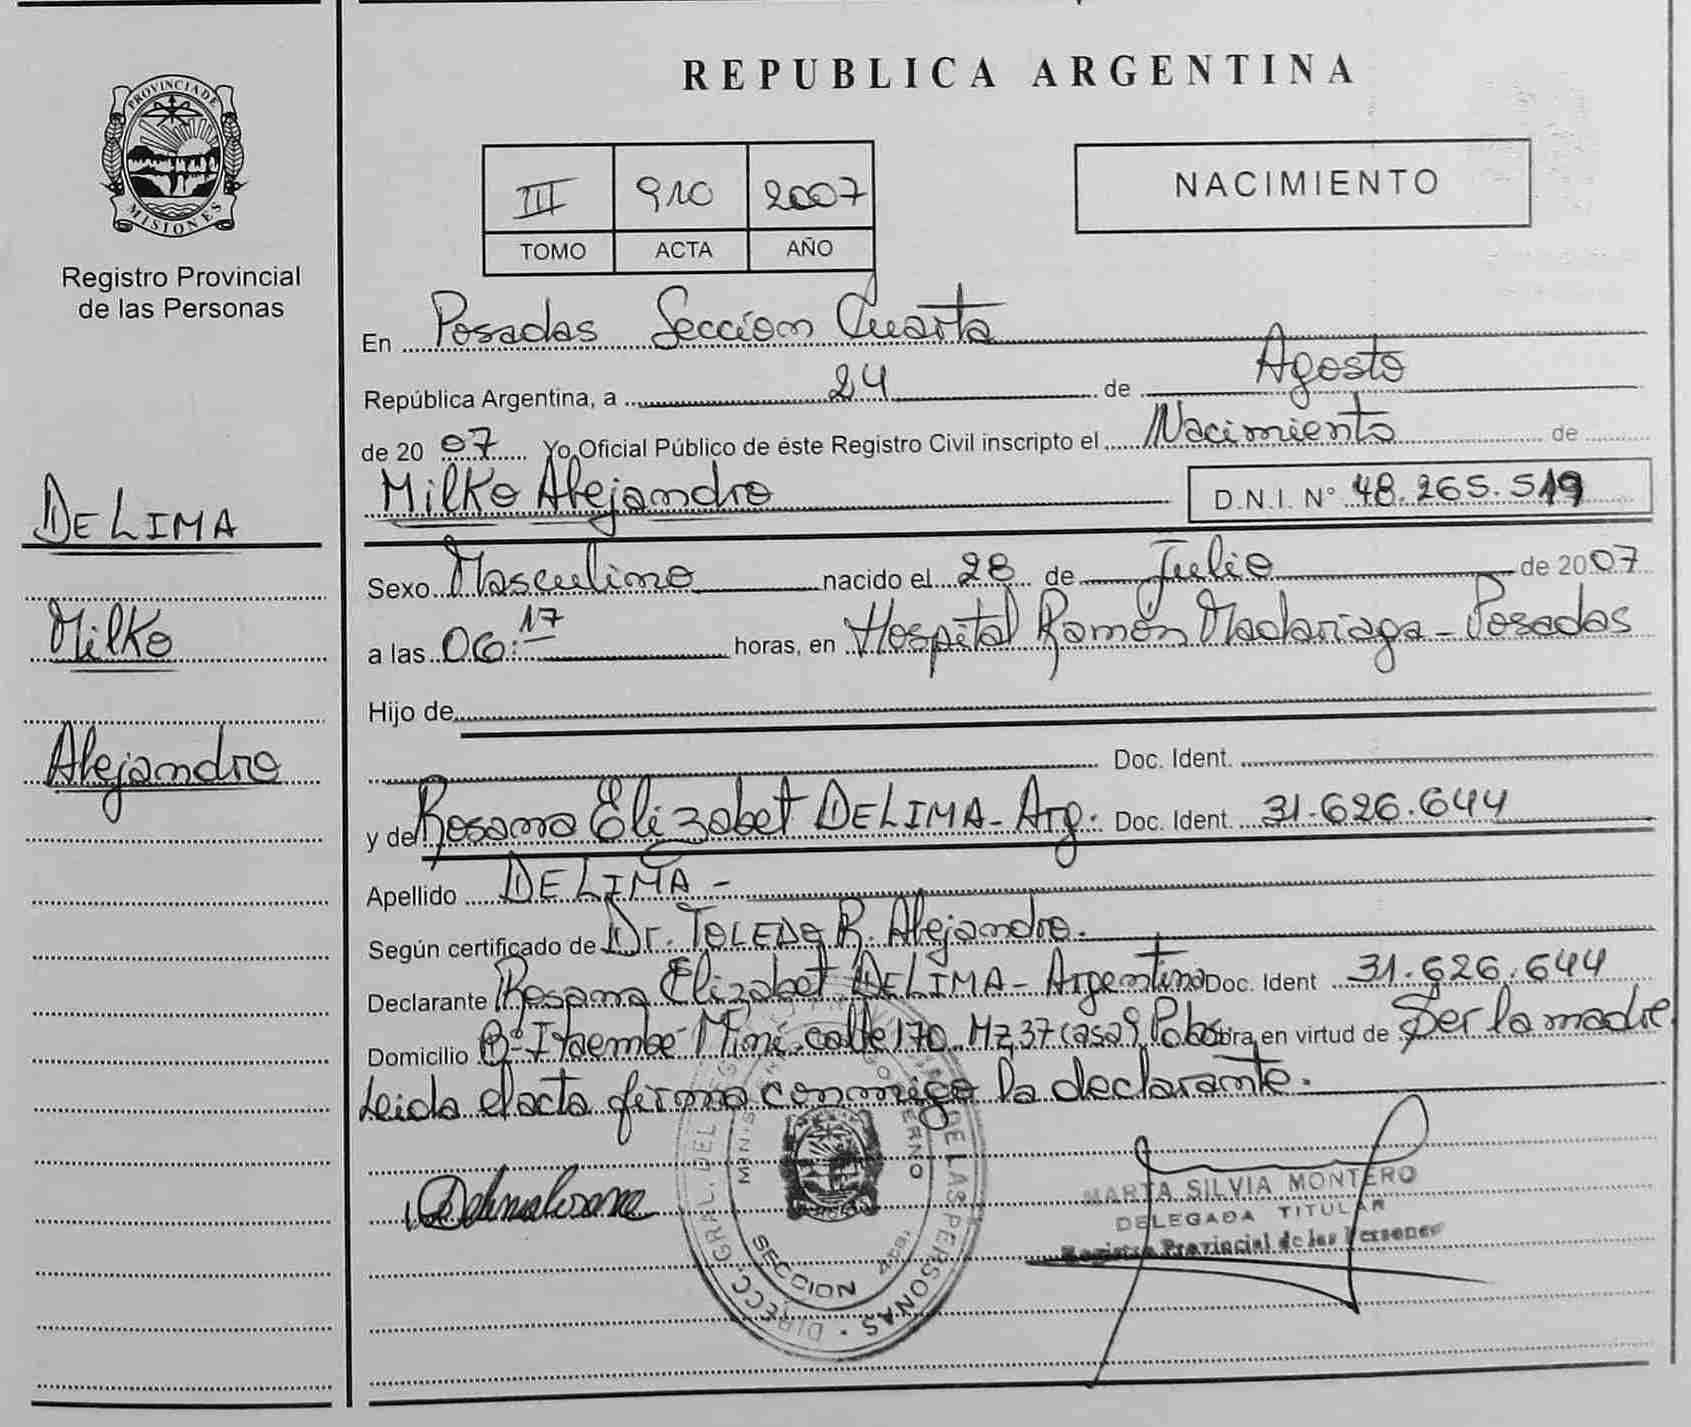 PROVINCIA DE
MISIONES
Registro Provincial
de las Personas
DE LIMA
Milko
Alejandro
REPUBLICA ARGENTINA
III 910 2007
TOMO ACTA AÑO
NACIMIENTO
En Posadas Seccion Cuarta
República Argentina, a 24 de Agosto
de 20 07 Yo Oficial Público de éste Registro Civil inscripto el Nacimiento de
Milko Alejandro D.N.I. N° 48.265.519
Sexo Masculino nacido el 28 de Julio de 2007
a las 06:17 horas, en Hospital Ramón Madariaga - Posadas
Hijo de
Doc. Ident.
y de Rosana Elizabet DE LIMA - Arg. Doc. Ident. 31.626.644
Apellido DE LIMA -
Según certificado de Dr. TOLEDO R. Alejandro.
Declarante Rosana Elizabet DE LIMA - Argentina Doc. Ident 31.626.644
Domicilio Bº Itaembé Miní calle 170 Mz 37 casa 9 Pdas Obra en virtud de Ser la madre
Leida el acta firma conmigo la declarante.
MARTA SILVIA MONTERO
DELEGADA TITULAR
Registro Provincial de las Personas
DIRECC. GRAL. DEL DE LAS PERSONAS
SECCION 4ta.